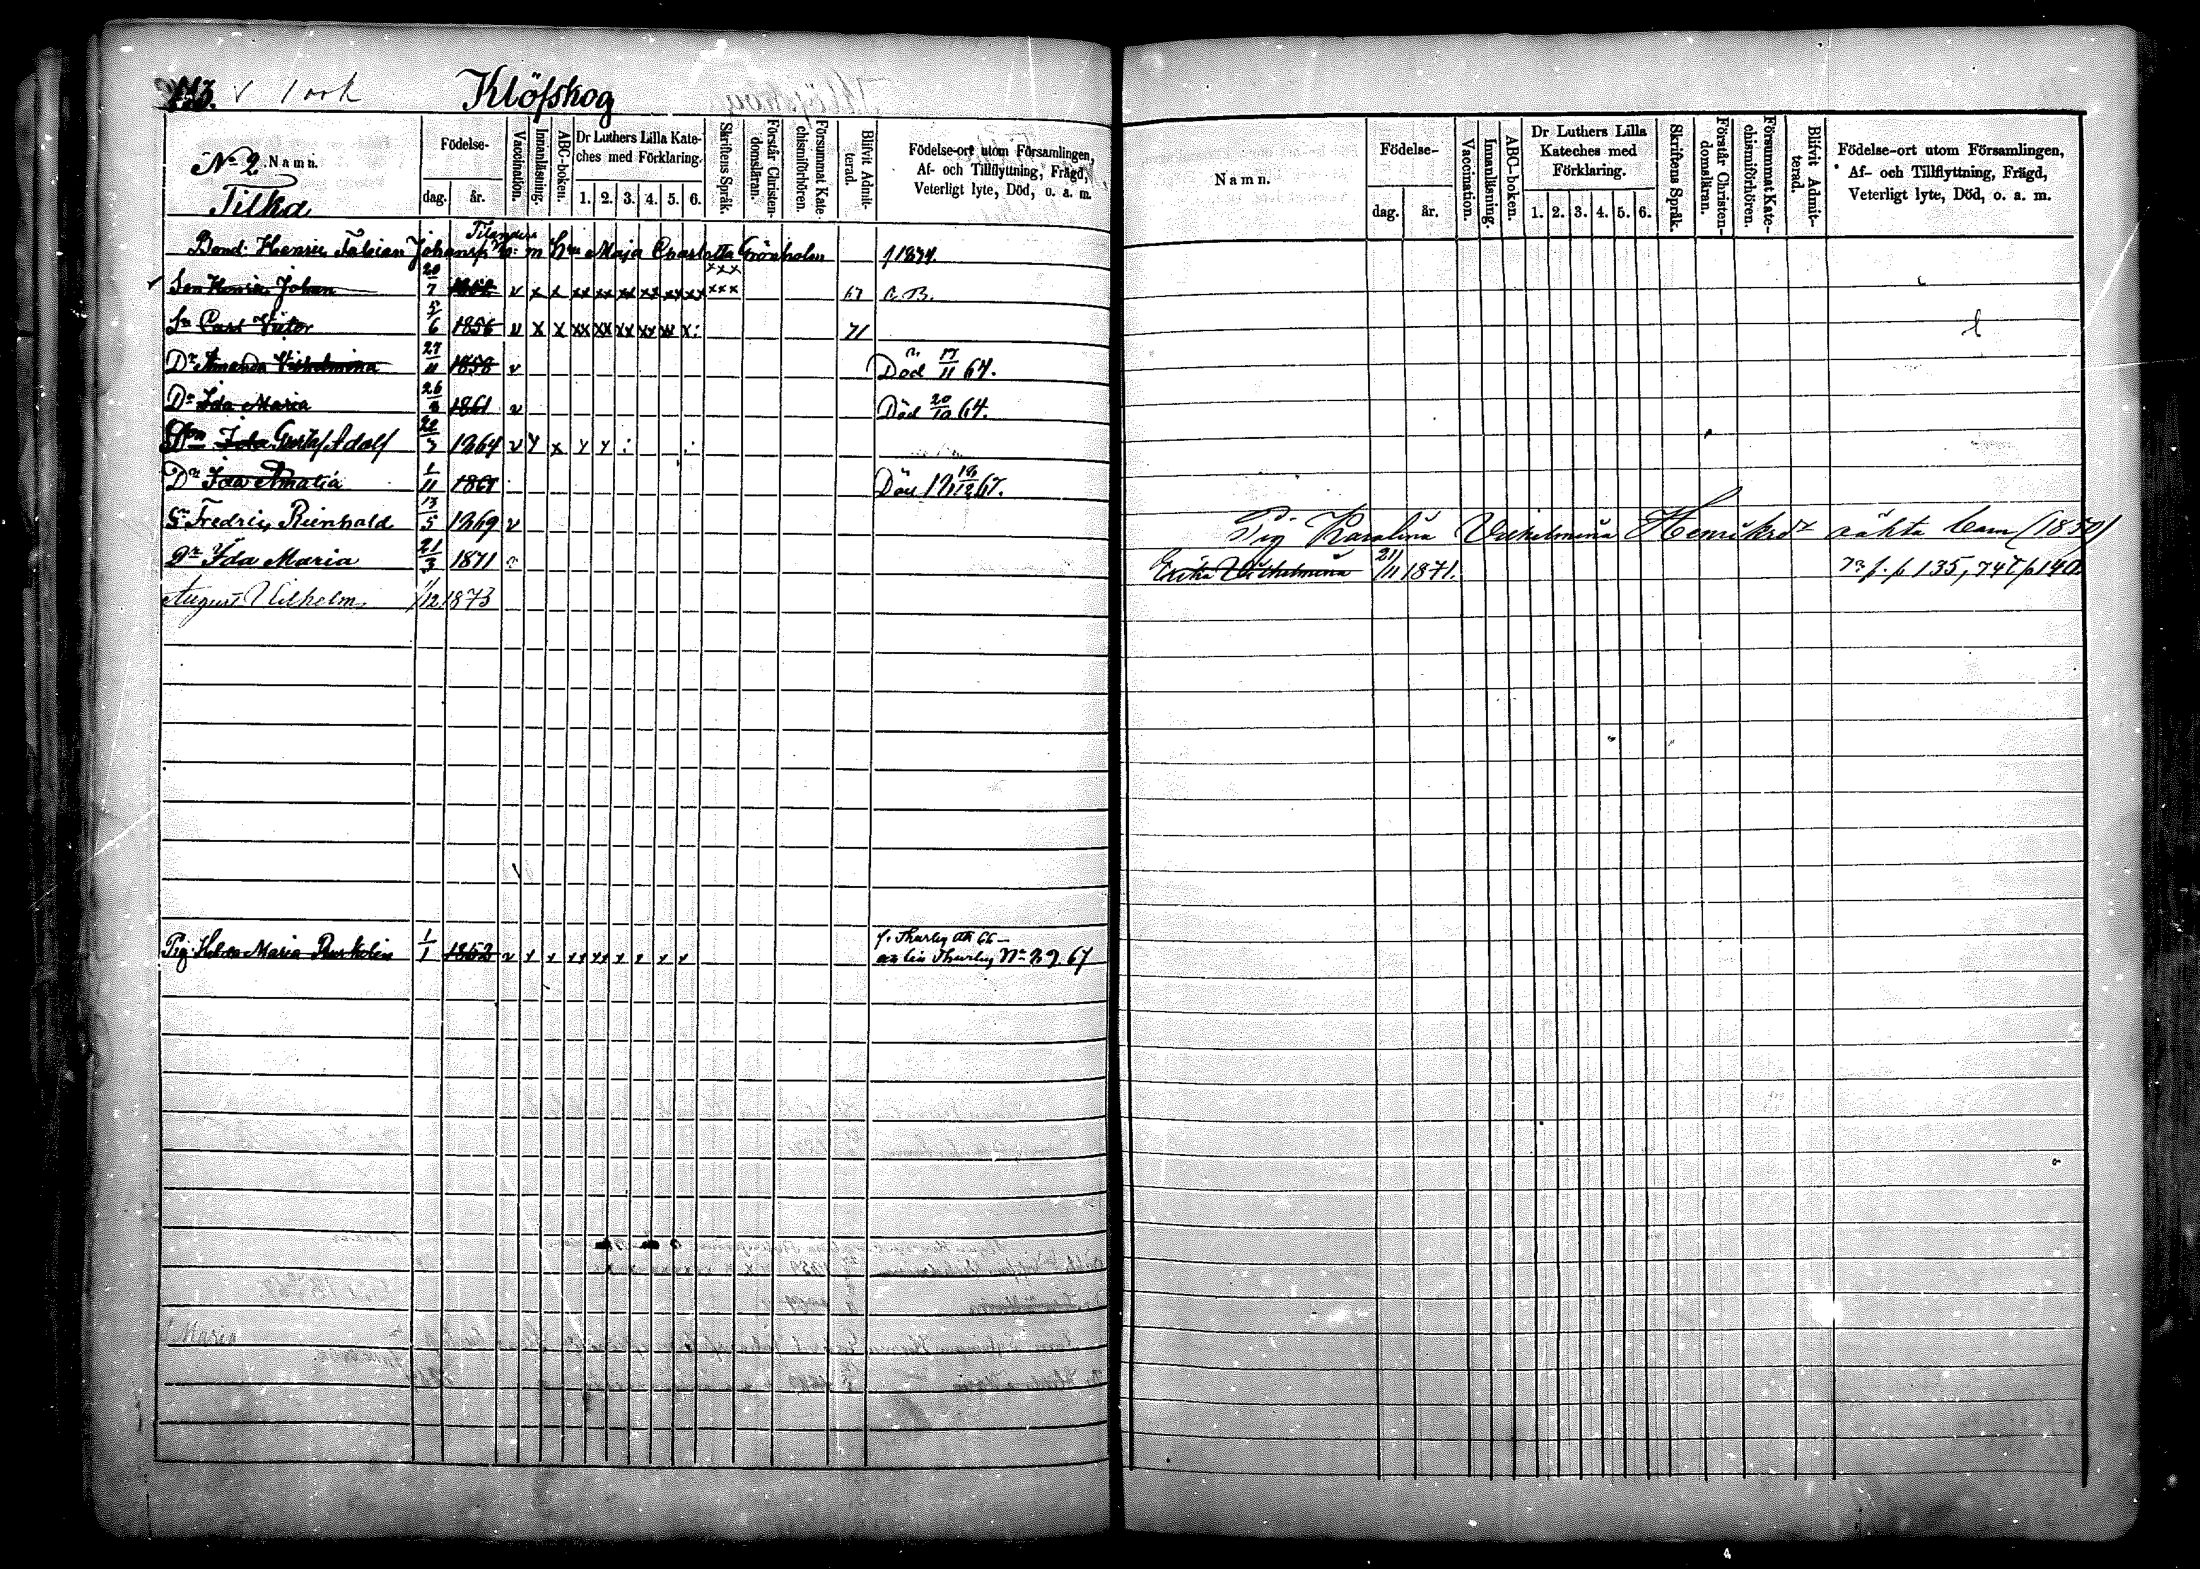 Klöfskog
No 2 Namn.
Tilkä
Födelse-
dag. år.
Vaccination.
Innanläsning.
ABC-boken.
Dr Luthers Lilla Kate-
ches med Förklaring.
1. 2. 3. 4. 5. 6.
Skriftens Språk.
Förstår Christen-
domsläran.
Försummat Kate-
chismiförhören.
Blifvit Admit-
terad.
Födelse-ort utom Församlingen,
Af- och Tillflyttning, Frägd,
Veterligt lyte, Död, o. a. m.
Bond. Henric Fabian Johansf m Hu Maja Charlotta Grönholm f 1874
Son Henric Johan 20/7 v x x xx xx xx xx xx xx xxx 67
Sn Carl Victor 5/6 1856 v x x xx xx xx xx xx x: 71
Dr Amanda Vilhelmina 27/11 1858 v Död 17/11 64.
Dr Ida Maria 26/3 1861 v Död 20/10 64.
Son Ida Gustaf Adolf 22/7 1864 v
Dr Ida Amalia 1/11 1867 Död 67.
Sn Fredric Reinhold 13/5 1869 v
Dr Ida Maria 21/3 1871
August Vilhelm 1/12 1873
Pig. Helena Maria 1/1 1852 v x x
67
Namn.
Födelse-
dag. år.
Vaccination.
Innanläsning.
ABC-boken.
Dr Luthers Lilla
Kateches med
Förklaring.
1. 2. 3. 4. 5. 6.
Skriftens Språk.
Förstår Christen-
domsläran.
Försummat Kate-
chismiförhören.
Blifvit Admit-
terad.
Födelse-ort utom Församlingen,
Af- och Tillflyttning, Frägd,
Veterligt lyte, Död, o. a. m.
Pig Karolina Vilhelmina Henriksdr oäkta barn (1850)
Erika Vilhelmina 21/11 1871. p 135, 747 p 140